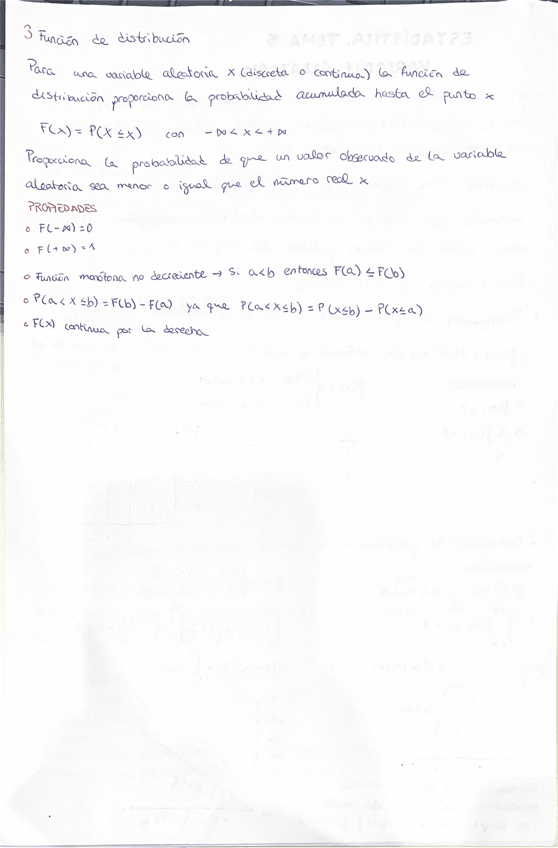 3 Función de distribución
Para una variable aleatoria X (discreta o continua) la función de
distribución proporciona la probabilidad acumulada hasta el punto x
F(x) = P(X ≤ x) con -∞ < x < +∞
Proporciona la probabilidad de que un valor observado de la variable
aleatoria sea menor o igual que el número real x
PROPIEDADES
o F(-∞) = 0
o F(+∞) = 1
o Función monótona no decreciente → Si a<b entonces F(a) ≤ F(b)
o P(a < X ≤ b) = F(b) - F(a) ya que P(a < X ≤ b) = P(X ≤ b) - P(X ≤ a)
o F(x) continua por la derecha